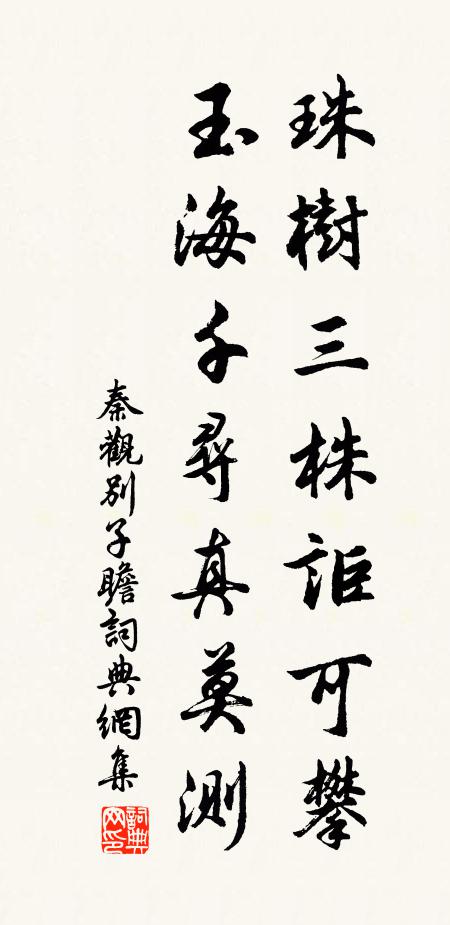 珠樹三株詎可攀
玉海千尋真莫測
秦觀別子瞻詞典網集
詞典網印